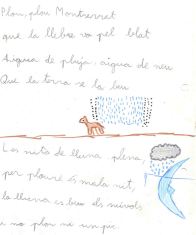 Plou, plou Montserrat
que la llebre va pel blat
Aigua de pluja, aigua de neu
Que la terra se la beu
Les nits de lluna plena,
per ploure és mala nit,
la lluna es beu els núvols
i no plou ni un pic